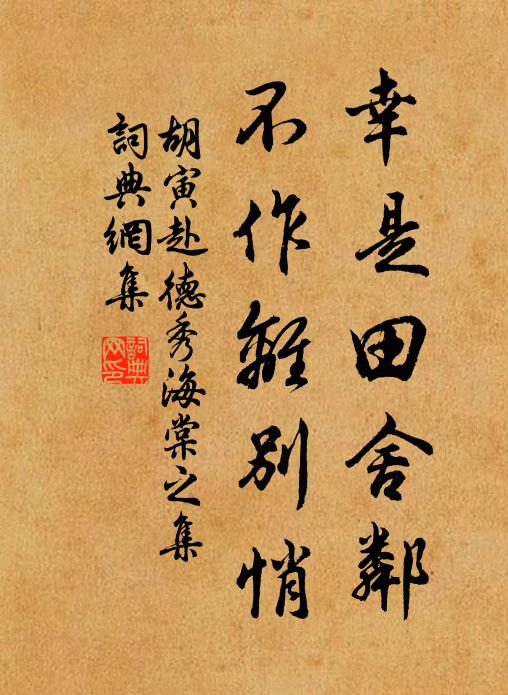 幸是田舍鄰
不作離別悄
胡寅赴德秀海棠之集
詞典網集
詞典網印